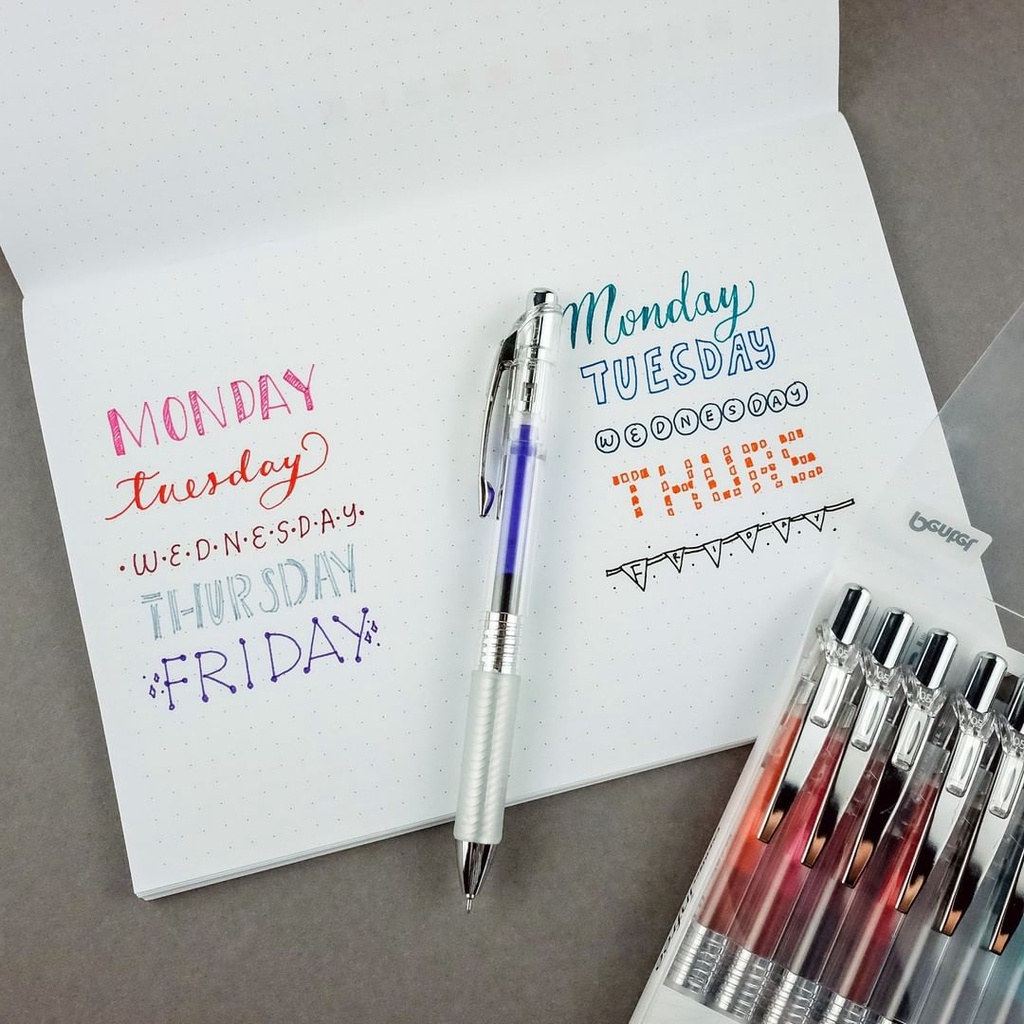 MONDAY
tuesday
·W·E·D·N·E·S·D·A·Y·
THURSDAY
FRIDAY
Monday
TUESDAY
WEDNESDAY
THURS
FRIDAY
Pentel